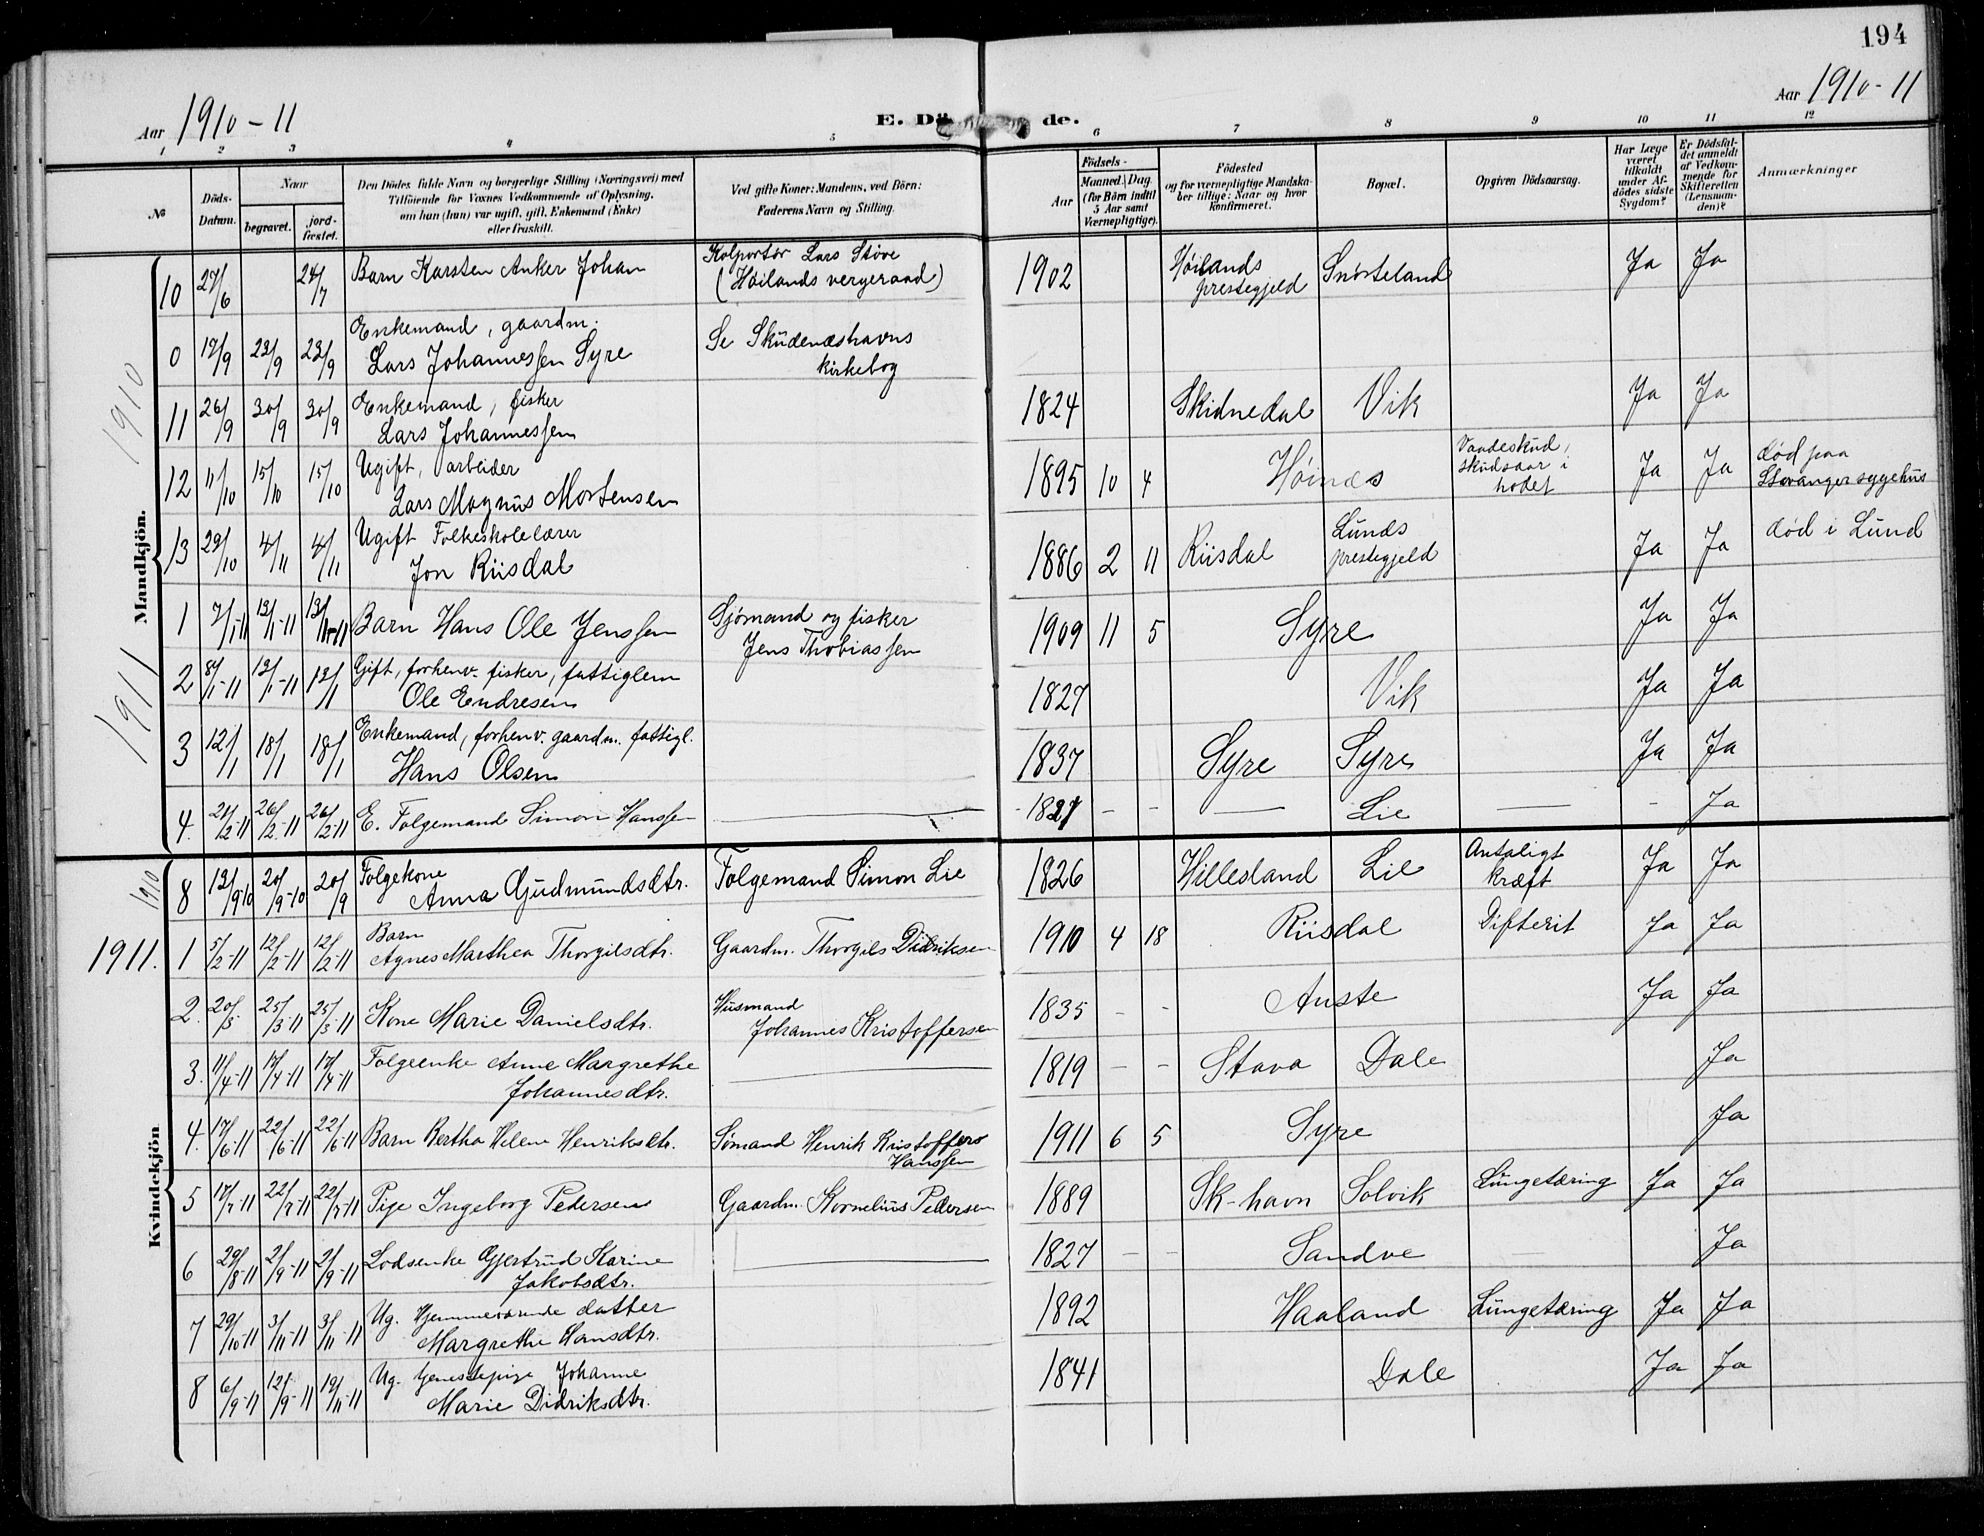 194
Aar 1910-11
Aar 1910-11
E. Dö de.
1 2 3 4 5 6 7 8 9 10 11 12
№
Döds-Datum.
Naar
begravet.
jord-fæstet.
Den Dödes fulde Navn og borgerlige Stilling (Næringsvei) med
Tilföiende for Voxnes Vedkommende af Oplysning,
om han (hun) var ugift, gift, Enkemand (Enke)
eller fraskilt.
Ved gifte Koner: Mandens, ved Börn:
Faderens Navn og Stilling.
Födsels-
Aar
Maaned. Dag.
(for Börn indtil
5 Aar samt
Værnepligtige).
Födested
og for værnepligtige Mandska-
ber tillige: Naar og hvor
konfirmeret.
Bopæl.
Opgiven Dödsaarsag.
Har Læge
været
tilkaldt
under Af-
dödes sidste
Sygdom?
Er Dödsfal-
det anmeldt
af Vedkom-
mende for
Skifteretten
(Lensman-
den)?
Anmærkninger
Mandkjön.
1910
10 27/6 24/7 Barn Karsten Anker Johan Kolportör Lars Stöve
(Höilands vergeraad) 1902 Höilands
prestegjeld Snörteland Ja Ja
0 19/9 23/9 23/9 Enkemand, gaardm.
Lars Johannessen Syre Se Skudenæshavns
kirkebog
11 26/9 30/9 30/9 Enkemand, fisker
Lars Johannessen 1824 Skidnedal Vik Ja Ja
12 11/10 15/10 15/10 Ugift, arbeider
Lars Magnus Mortensen 1895 10 4 Höinæs Vaadeskud,
skudsaar i
hodet Ja Ja död paa
Stavanger sygehus
13 29/10 4/11 4/11 Ugift Folkeskolelærer
Jon Riisdal 1886 2 11 Riisdal Lunds
prestegjeld Ja Ja död i Lund
1911
1 7/1-11 13/1-11 13/1-11 Barn Hans Ole Jenssen Sjömand og fisker
Jens Thobiassen 1909 11 5 Syre Ja Ja
2 8/1-11 12/1-11 12/1 Gift, forhenv. fisker, fattiglem
Ole Endresen 1827 Vik Ja Ja
3 12/1 18/1 18/1 Enkemand, forhenv. gaardm. fattigl.
Hans Olsen 1837 Syre Syre Ja Ja
4. 21/2-11 26/2-11 26/2-11 E. Folgemand Simon Hanssen 1827 - - Lie - Ja
Kvindekjön
1910
8 13/9 10 20/9-10 20/9 Folgekone
Anna Gjudmundsdtr. Folgemand Simon Lie 1826 Hillesland Lie Antaligt
kræft Ja Ja
1911.
1 5/2-11 12/2-11 12/2-11 Barn
Agnes Marthea Thorgilsdtr. Gaardm. Thorgils Didriksen 1910 4 18 Riisdal Difterit Ja Ja
2. 20/3 25/3-11 25/3-11 Kone Marie Danielsdtr. Husmand
Johannes Kristoffersen 1835 - - Auste Ja Ja
3. 11/4-11 17/4-11 17/4-11 Folgeenke Anne Margrethe
Johannesdtr. 1819 - - Stava Dale Ja
4. 17/6-11 22/6-11 22/6-11 Barn Bertha Helene Henriksdtr. Sömand Henrik Kristoffers
Hanssen 1911 6 5 Syre Ja
5 17/7-11 22/7-11 22/7-11 Pige Ingeborg Pedersen Gaardm. Kornelius Pedersen 1889 Sk-havn Solvik Lungetæring Ja Ja
6 29/8-11 2/9-11 2/9-11 Lodsenke Gjertrud Karine
Jakobsdtr. 1827 - - Sandve Ja
7 29/10-11 3/11-11 3/11-11 Ug. Hjemmeværende datter
Margrethe Hansdtr. 1892 Haaland Lungetæring Ja Ja
8 6/9-11 12/9-11 19/11-11 Ug. tjenestepige Johanne
Marie Didriksdtr. 1841 Dale Ja Ja